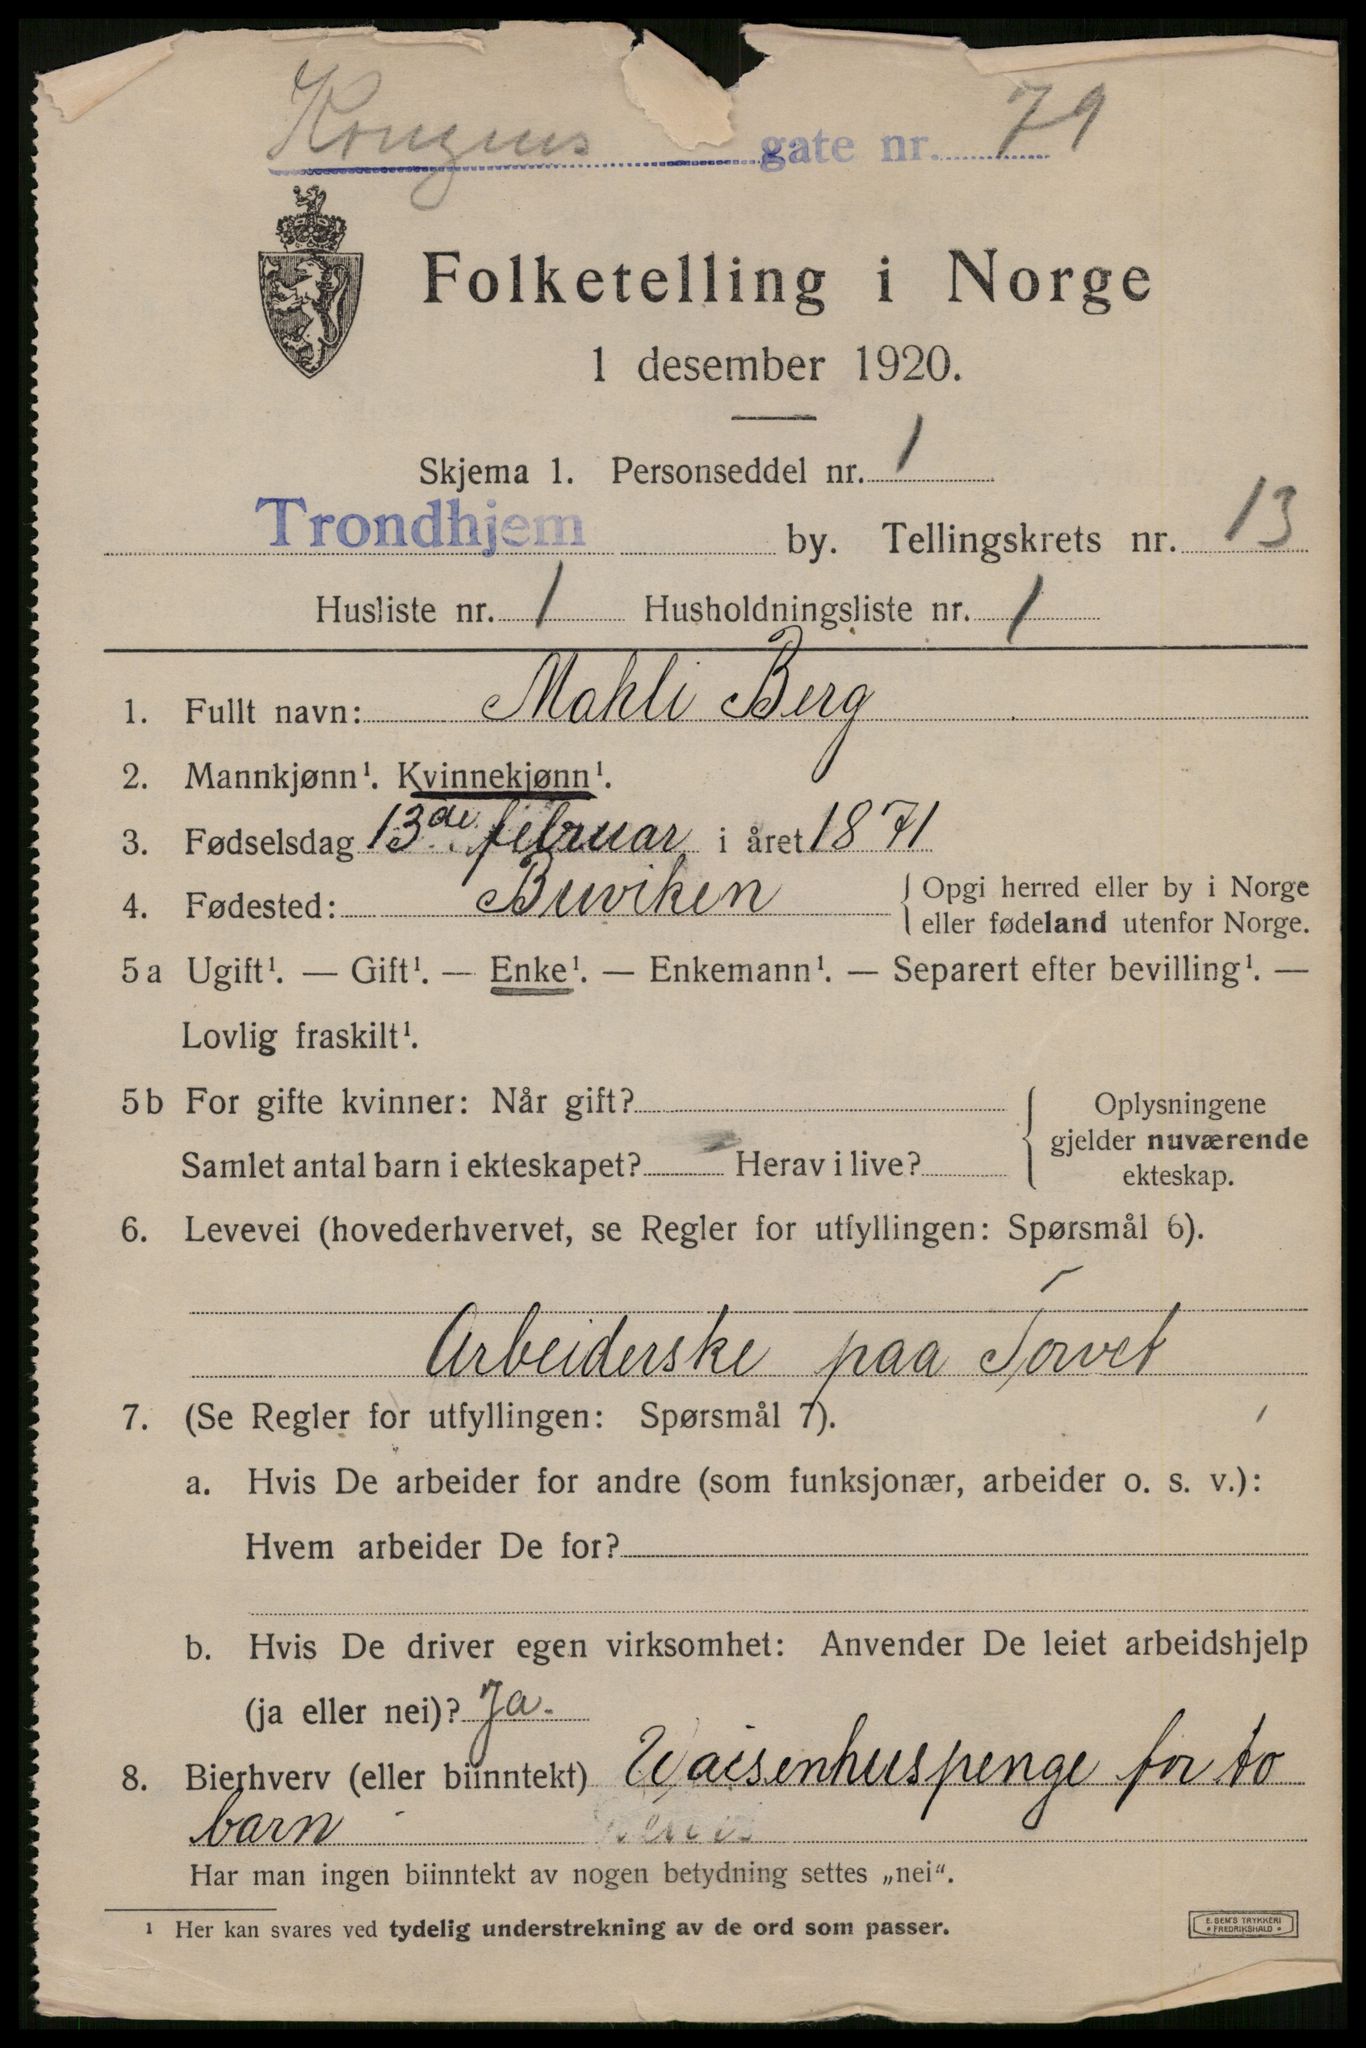 Kongens gate nr. 79
Folketelling i Norge
1 desember 1920.
Skjema 1. Personseddel nr. 1
Trondhjem by. Tellingskrets nr. 13
Husliste nr. 1 Husholdningsliste nr. 1
1. Fullt navn: Mahli Berg
2. Mannkjønn¹. Kvinnekjønn¹.
3. Fødselsdag 13de februar i året 1871
4. Fødested: Buviken { Opgi herred eller by i Norge
eller fødeland utenfor Norge.
5a Ugift¹. — Gift¹. — Enke¹. — Enkemann¹. — Separert efter bevilling¹. —
Lovlig fraskilt¹.
5b For gifte kvinner: Når gift? { Oplysningene
gjelder nuværende
Samlet antal barn i ekteskapet? Herav i live? ekteskap.
6. Levevei (hovederhvervet, se Regler for utfyllingen: Spørsmål 6).
Arbeiderske paa Torvet
7. (Se Regler for utfyllingen: Spørsmål 7).
a. Hvis De arbeider for andre (som funksjonær, arbeider o. s. v.):
Hvem arbeider De for?
b. Hvis De driver egen virksomhet: Anvender De leiet arbeidshjelp
(ja eller nei)? Ja.
8. Bierhverv (eller biinntekt) Waisenhuspenge for to
barn
Har man ingen biinntekt av nogen betydning settes „nei“.
¹ Her kan svares ved tydelig understrekning av de ord som passer.
E. SEM'S TRYKKERI
FREDRIKSHALD